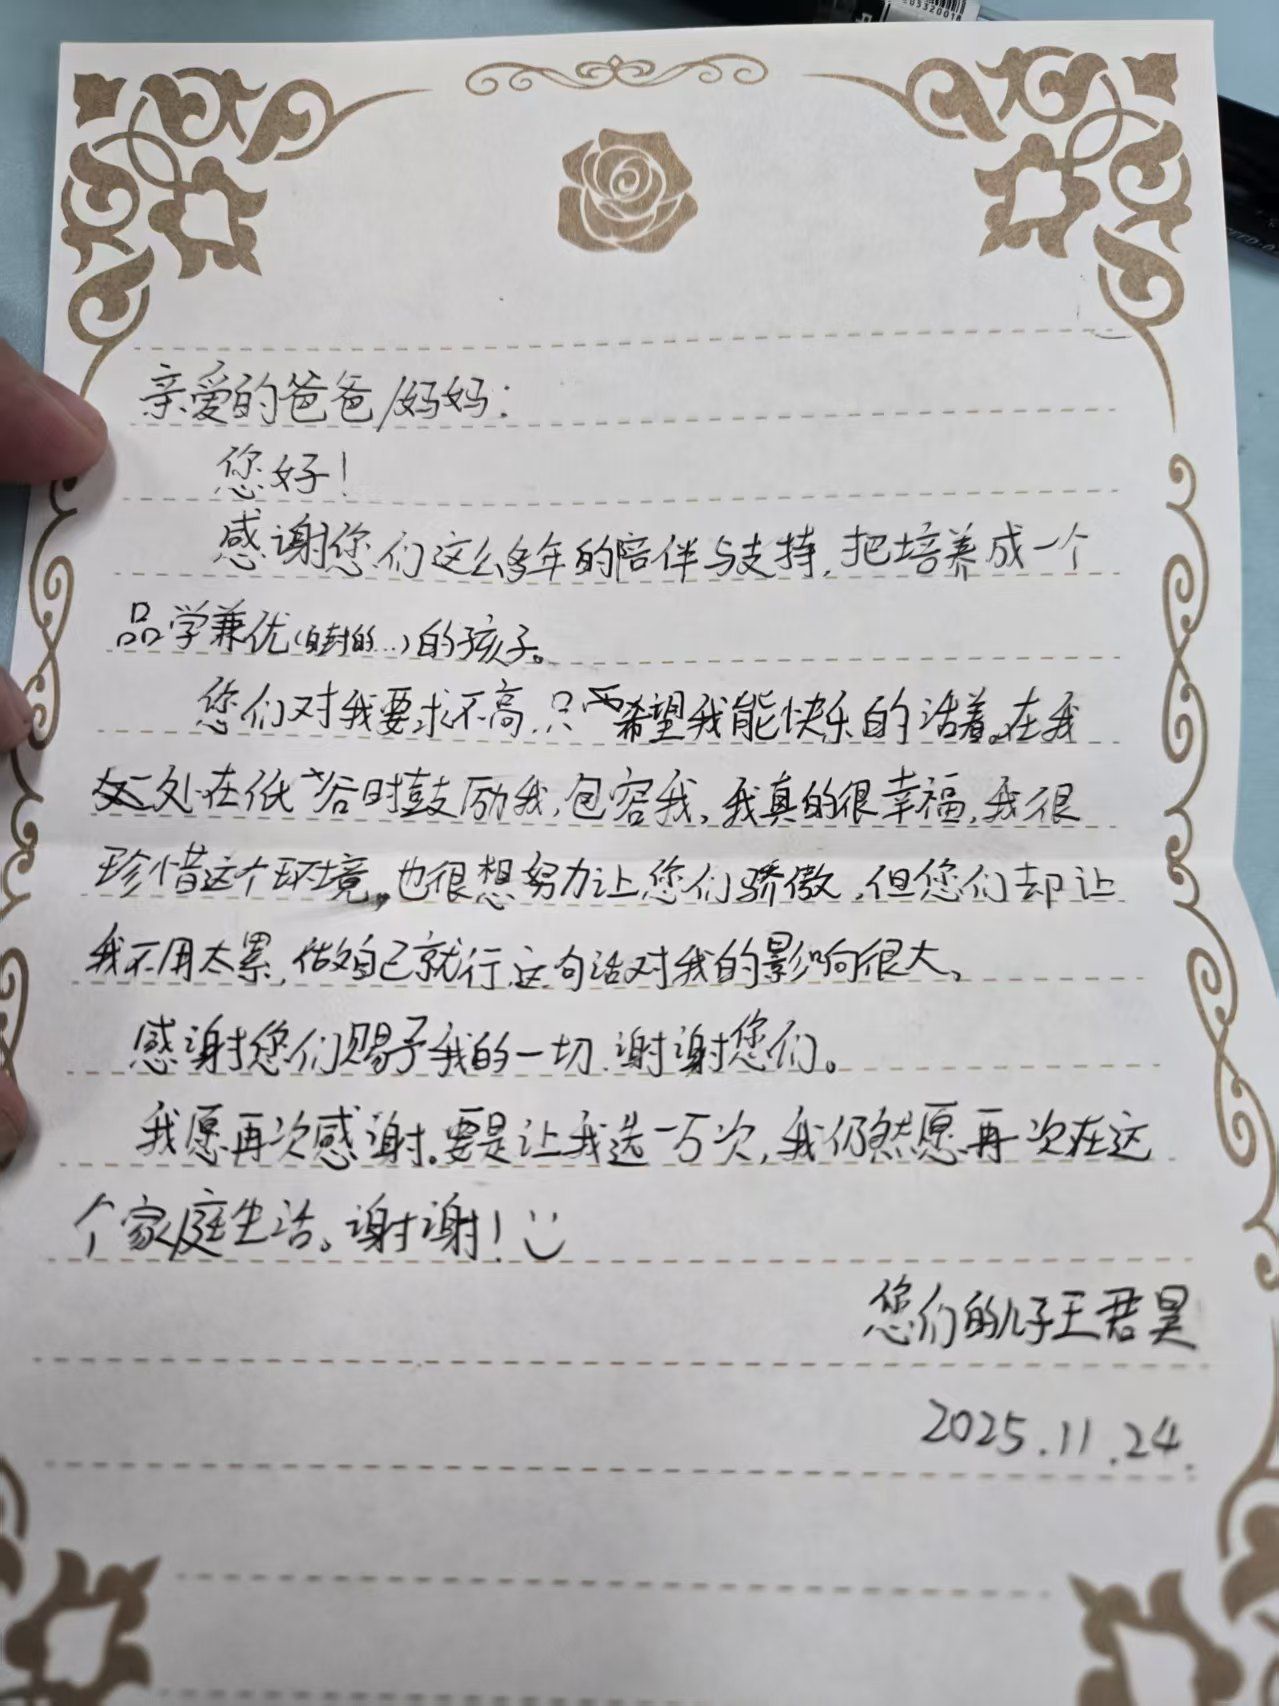 05320018
亲爱的爸爸/妈妈：
您好！
感谢您们这么多年的陪伴与支持，把培养成一个
品学兼优（自封的…）的孩子。
您们对我要求不高，只希望我能快乐的活着。在我
处在低谷时鼓励我，包容我，我真的很幸福，我很
珍惜这个环境，也很想努力让您们骄傲，但您们却让
我不用太累，做自己就行，这句话对我的影响很大。
感谢您们赐予我的一切，谢谢您们。
我愿再次感谢。要是让我选一万次，我仍然愿再一次在这
个家庭生活。谢谢！
您们的儿子王君昊
2025.11.24.